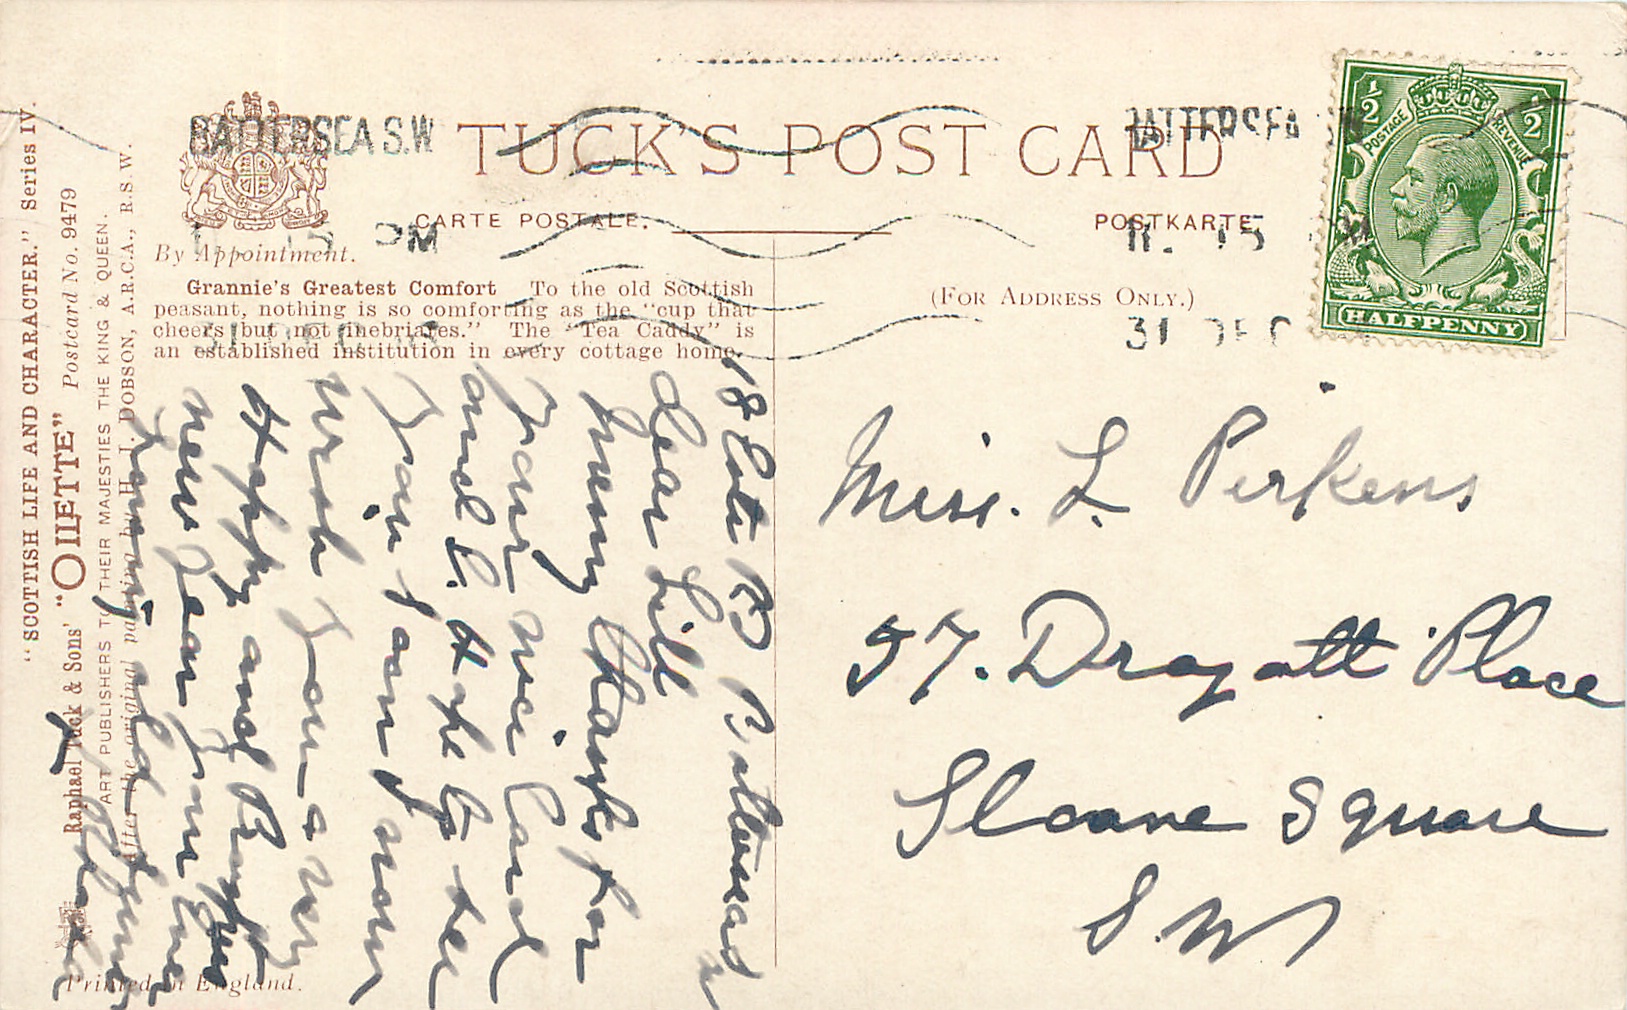 "SCOTTISH LIFE AND CHARACTER." Series IV.
Raphael Tuck & Sons' "OILETTE" Postcard No. 9479
ART PUBLISHERS TO THEIR MAJESTIES THE KING & QUEEN.
After the original painting by H. J. DOBSON, A.R.C.A., R.S.W.
BATTERSEA S.W
PM
TUCK'S POST CARD
CARTE POSTALE.
POSTKARTE
By Appointment.
Grannie's Greatest Comfort To the old Scottish
peasant, nothing is so comforting as the "cup that
cheers but not inebriates." The "Tea Caddy" is
an established institution in every cottage home.
(FOR ADDRESS ONLY.)
BATTERSEA
31 DEC
½ ½
POSTAGE REVENUE
HALFPENNY
Miss. L. Perkens
57. Draycott Place
Sloane Square
S. W
18 Rd Battersea
Dear Lill
many thanks for
your nice Card
and L. Hope to see
you I am
wish you a very
Happy and
new year from
loving old
Printed in England.